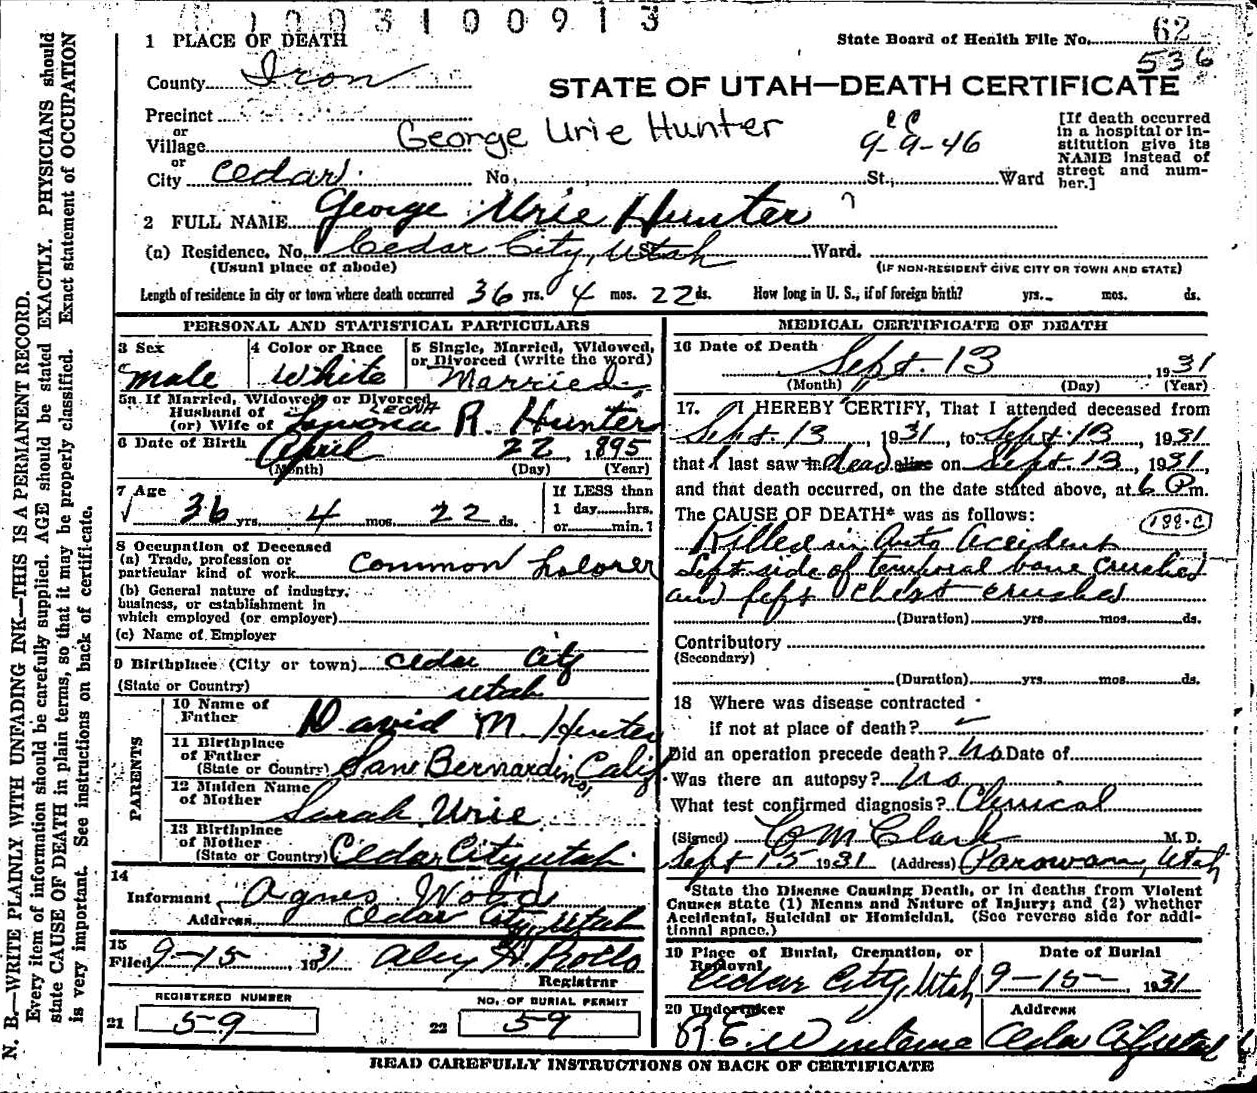 1003100913
1 PLACE OF DEATH
State Board of Health File No. 62
536
County Iron
STATE OF UTAH—DEATH CERTIFICATE
Precinct
or
Village
George Urie Hunter
9-9-46
[If death occurred in a hospital or institution give its NAME instead of street and number.]
or
City Cedar No. St.; Ward
2 FULL NAME George Urie Hunter
(a) Residence. No. Cedar City, Utah St. Ward.
(Usual place of abode) (IF NON-RESIDENT GIVE CITY OR TOWN AND STATE)
Length of residence in city or town where death occurred 36 yrs. 4 mos. 22 ds. How long in U. S., if of foreign birth? yrs. mos. ds.
PERSONAL AND STATISTICAL PARTICULARS
3 Sex
male
4 Color or Race
White
5 Single, Married, Widowed, or Divorced (write the word)
Married
5a If Married, Widowed or Divorced
Husband of
(or) Wife of LEONA R. Hunter
6 Date of Birth April 22, 1895
(Month) (Day) (Year)
7 Age
36 yrs. 4 mos. 22 ds.
If LESS than
1 day hrs.
or min.?
8 Occupation of Deceased
(a) Trade, profession or particular kind of work Common Laborer
(b) General nature of industry, business, or establishment in which employed (or employer)
(c) Name of Employer
9 Birthplace (City or town) Cedar City
(State or Country) Utah
PARENTS
10 Name of Father David M. Hunter
11 Birthplace of Father (State or Country) San Bernardino, Calif
12 Maiden Name of Mother Sarah Urie
13 Birthplace of Mother (State or Country) Cedar City, Utah
14
Informant Agnes Wood
Address Cedar City, Utah
15
Filed 9-15, 1931 Alex H. Rollo
Registrar
REGISTERED NUMBER
21 59
NO. OF BURIAL PERMIT
22 59
MEDICAL CERTIFICATE OF DEATH
16 Date of Death Sept. 13, 1931
(Month) (Day) (Year)
17. I HEREBY CERTIFY, That I attended deceased from
Sept. 13, 1931, to Sept. 13, 1931
that I last saw dead alive on Sept. 13, 1931,
and that death occurred, on the date stated above, at 6 P m.
The CAUSE OF DEATH* was as follows:
Killed in Auto Accident
Left side of temporal bone crushed
and left chest crushed
(Duration) yrs. mos. ds.
Contributory
(Secondary)
(Duration) yrs. mos. ds.
18 Where was disease contracted
if not at place of death?
Did an operation precede death? No Date of
Was there an autopsy? No
What test confirmed diagnosis? Clinical
(Signed) C M Clark M. D.
Sept 15 1931 (Address) Parowan, Utah
*State the Disease Causing Death, or in deaths from Violent
Causes state (1) Means and Nature of Injury; and (2) whether
Accidental, Suicidal or Homicidal. (See reverse side for additional space.)
19 Place of Burial, Cremation, or Removal
Cedar City, Utah
Date of Burial
9-15-, 1931
20 Undertaker
Address
Cedar City Utah
READ CAREFULLY INSTRUCTIONS ON BACK OF CERTIFICATE
N. B.—WRITE PLAINLY WITH UNFADING INK—THIS IS A PERMANENT RECORD.
Every item of information should be carefully supplied. AGE should be stated EXACTLY. PHYSICIANS should
state CAUSE OF DEATH in plain terms, so that it may be properly classified. Exact statement of OCCUPATION
is very important. See instructions on back of certificate.